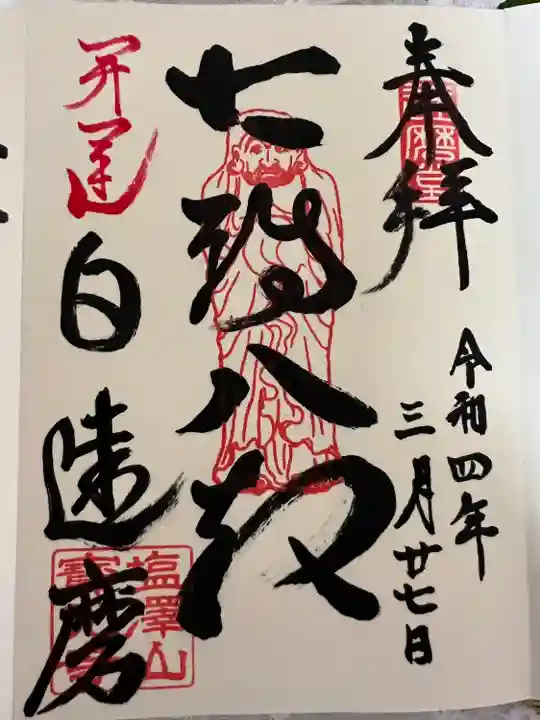 奉拝
令和四年
三月廿七日
七転八起
開運
白達磨
塩澤山